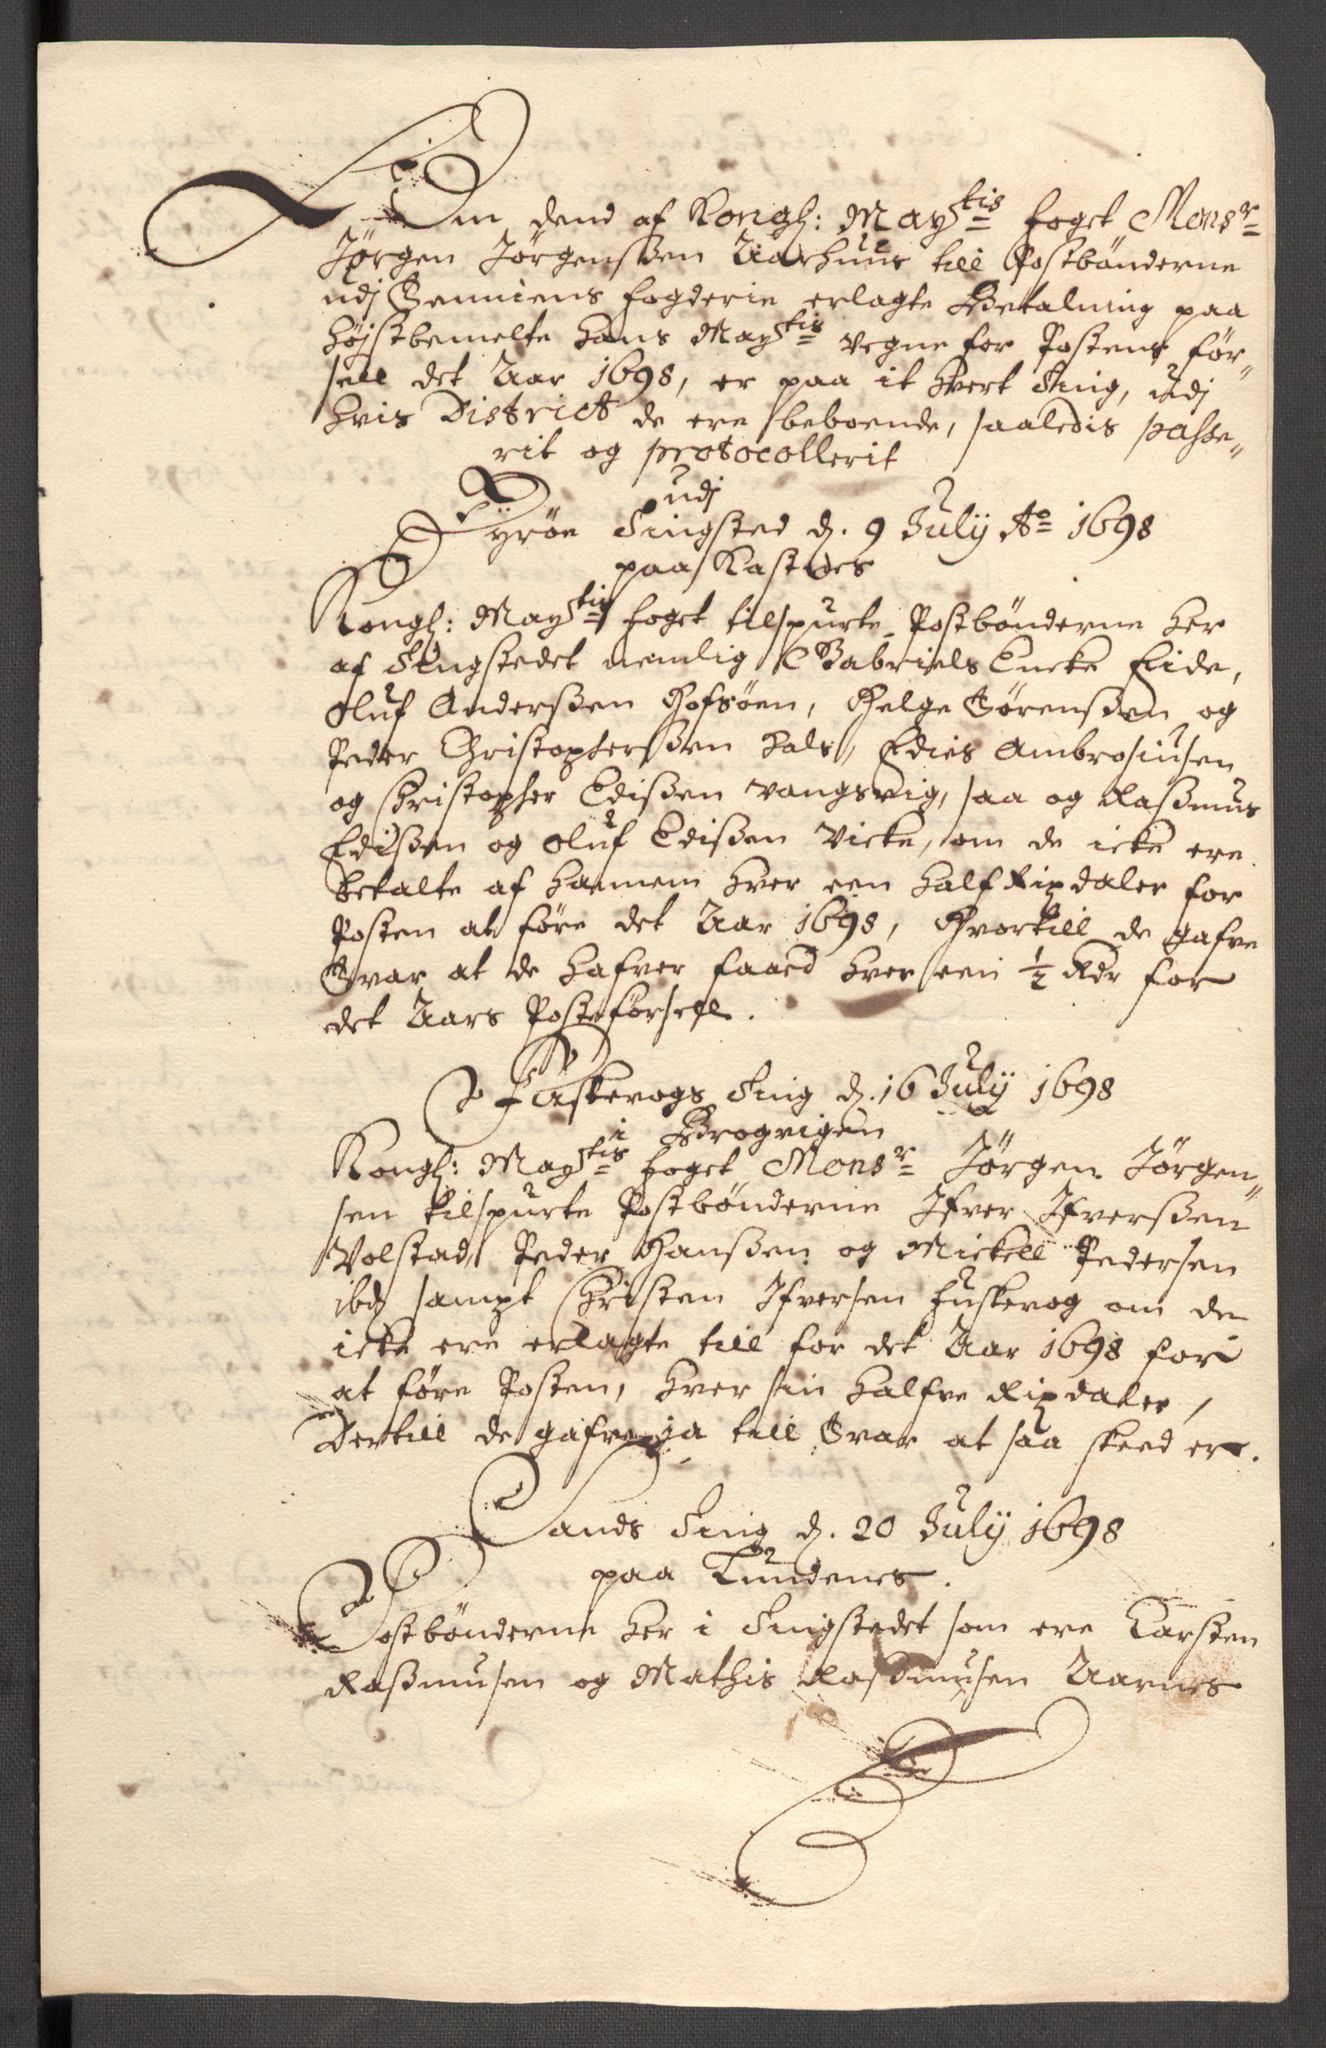 Om dend af Kongl: Maÿ:tis foget Mons:r
Jørgen Jørgenssøn Aarhuus till Postbønderne
udj Senniens fogderie erlagte Betalning paa
højstbemelte hans Maÿ:tis Vegne for Postens før-
sell det Aar 1698, er paa it hvert Ting, udj
hvis District de ere beboende, saaledis passe-
rit og protocollerit
udj
Dyrøe Tingsted d. 9 Julÿ Ao 1698
paa Kastnes
Kongl: Maÿ:tis foget tilspurte Postbønderne her
af Tingstedet nemlig Gabriels Encke Eide,
Oluf Anderßen Hofsøen, Helge Sørenßen og
Peder Christopherßen Hals, Edies Ambrosiusen
og Christopher Edißen Vangsvig, saa og Raßmus
Edißen og Oluf Edißen Vicke, om de icke ere
betalte af hannem hver een half Rixdaler for
Posten at føre det Aar 1698, Hvortill de gafve
Svar at de hafver faaed hver een ½ Rdr for
det Aars Posteførsell.
Fuskevogs Ting d. 16 Julÿ 1698
i Grogvigen
Kongl: Maÿ:tis foget Mons:r Jørgen Jørgen-
sen tilspurte Postbønderne Ifver Ifverßen
Volstad, Peder Hanßen og Mickell Pedersen
ibd sampt Christen Ifversen Fuskevog om de
icke ere erlagte till for det Aar 1698 for
at føre Posten, hver sin halfve Rixdaler,
Dertill de gafve ja till Svar at saa skeed er.
Sands Ting d. 20 Julÿ 1698
paa Tundenes.
Postbønderne her i Tingstedet som ere Carsten
Raßmusen og Mathis Raßmusen Aarnes